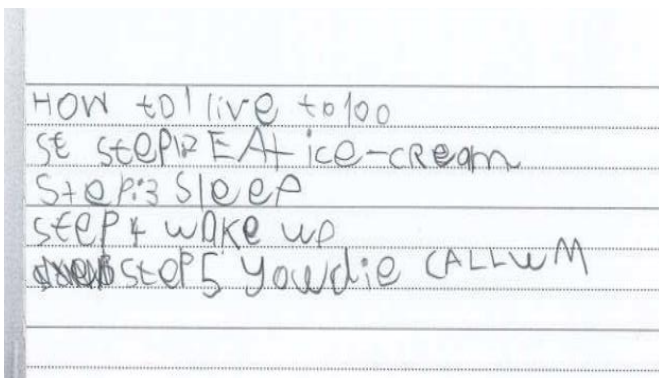 HOW to live to 100
st step 12 EAt ice-cream
Step:3 Sleep
steP 4 wake up
steP 5 you die CALLUM